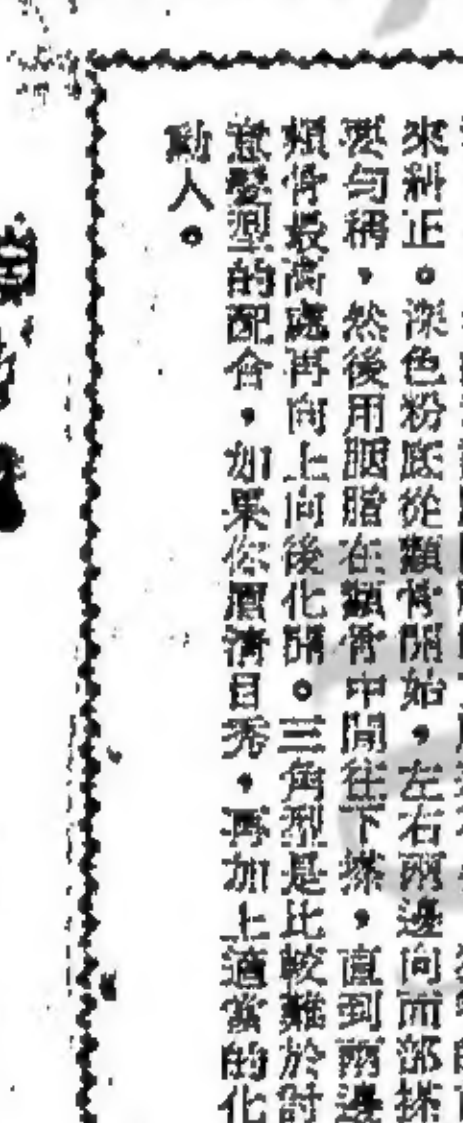 來糾正。深色粉底從顴骨開始，左右兩邊向面部搽
要勻稱，然後用胭脂在顴骨中間往下搽，直到兩邊
頰骨最高處再向上向後化開。三角型是比較難於討
意髮型的配合，如果你眉清目秀，再加上適當的化
動人。